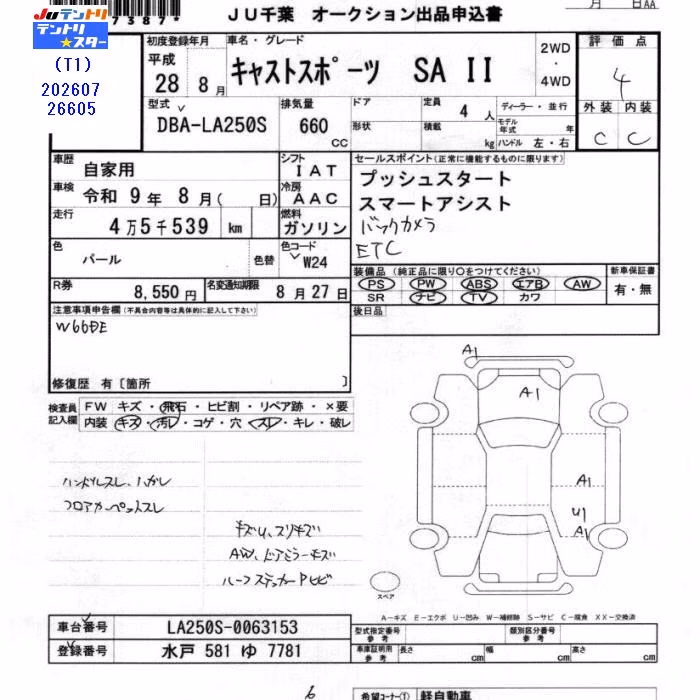 7387*
JU千葉 オークション出品申込書
月 日AA
JUテントリ
テントリ★スター
(T1)
202607
26605
初度登録年月
平成
28年 8月
車名・グレード
キャストスポーツ SA II
2WD
・
4WD
評価点
4
外装 内装
C C
型式
DBA-LA250S
排気量
660
CC
ドア
形状
定員
4 人
積載
kg
ディーラー・並行
モデル年式 年
ハンドル 左・右
車歴
自家用
シフト
IAT
車検
令和 9年 8月( 日)
冷房
AAC
走行
4万5千539 km
燃料
ガソリン
色
パール
色替
色コード
W24
R券
8,550円
名変通知期限
8月27日
セールスポイント(正常に機能するものに限ります)
プッシュスタート
スマートアシスト
バックカメラ
ETC
装備品(純正品に限り○をつけてください)
PS PW ABS エアB AW
SR ナビ TV カワ
新車保証書
有・無
後日品
注意事項申告欄(不具合内容等は具体的に記入して下さい)
修復歴 有〔箇所 〕
検査員記入欄
FW キズ・飛石・ヒビ割・リペア跡・×要
内装 キズ・汚レ・コゲ・穴・スレ・キレ・破レ
ハンドルスレ、ハガレ
フロアカーペットスレ
キズU、スリキズ
AW、ドアミラーキズ
ルーフステッカーPヒビ
A1
A1
A1
U1
A1
スペア
A−キズ E−エクボ U−凹み W−補修跡 S−サビ C−腐食 XX−交換済
車台番号
LA250S-0063153
登録番号
水戸 581 ゆ 7781
型式指定番号
参考
類別区分番号
参考
車庫証明用
参考
長さ cm
幅 cm
高さ cm
6
希望コーナー① 軽自動車